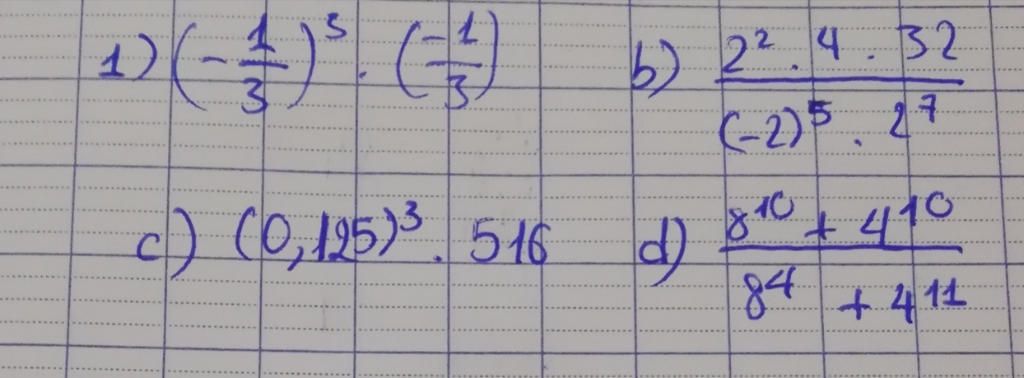 1) (-1/3)³ . (-1/3)
b) (2² . 4 . 32)/((-2)⁵ . 2⁷)
c) (0,125)³ . 516
d) (8¹⁰ + 4¹⁰)/(8⁴ + 4¹¹)